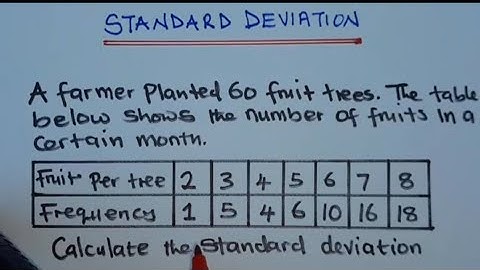 STANDARD DEVIATION
A farmer Planted 60 fruit trees. The table
below shows the number of fruits in a
certain month.
Fruit Per tree 2 3 4 5 6 7 8
Frequency 1 5 4 6 10 16 18
Calculate the standard deviation